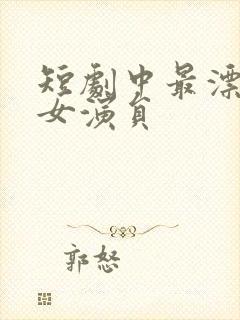 短劇中最漂
女演員
郭怒